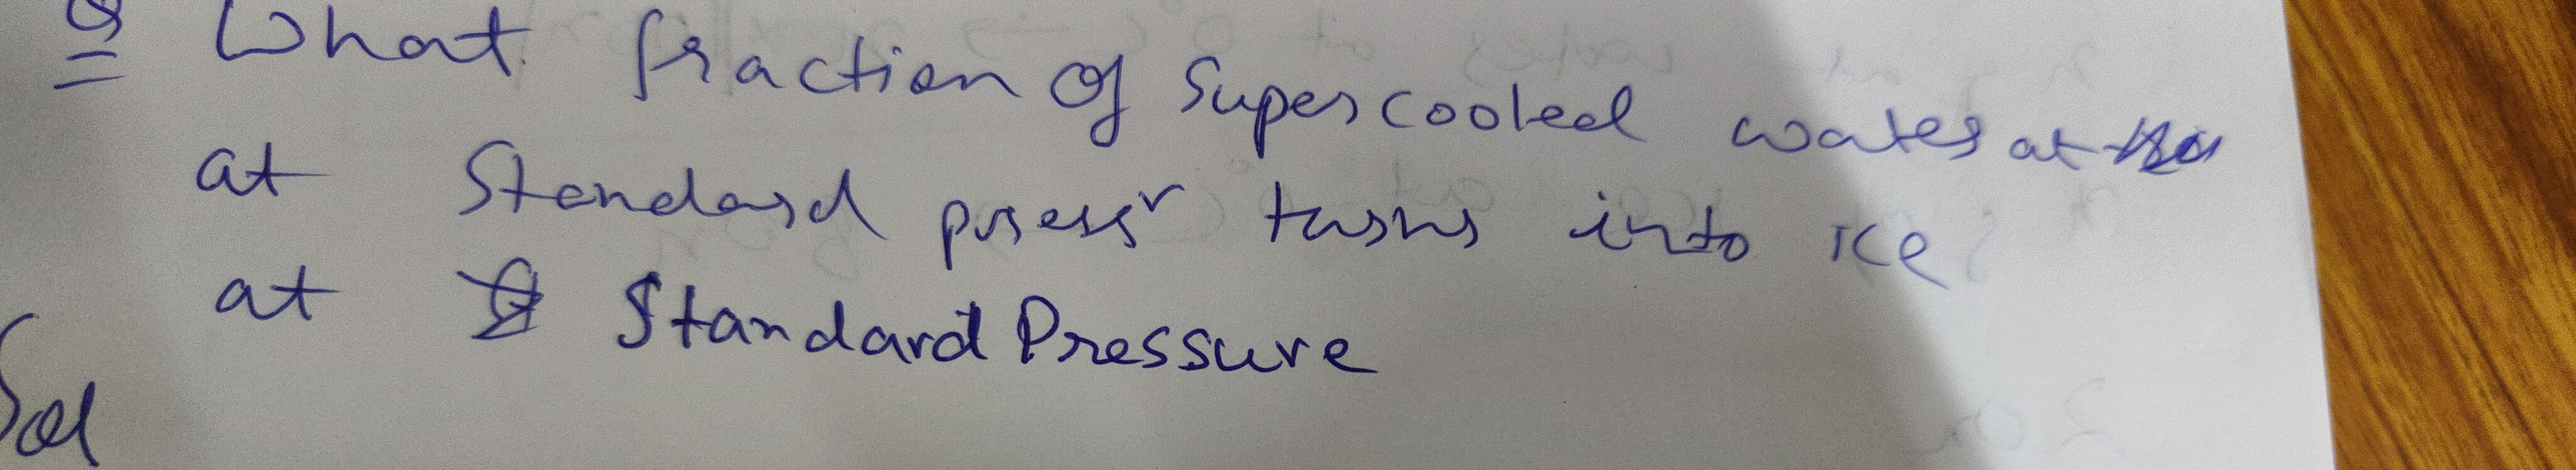 Q What fraction of supercooled water at
at Standard pressr turns into ice
at Standard Pressure
Sol